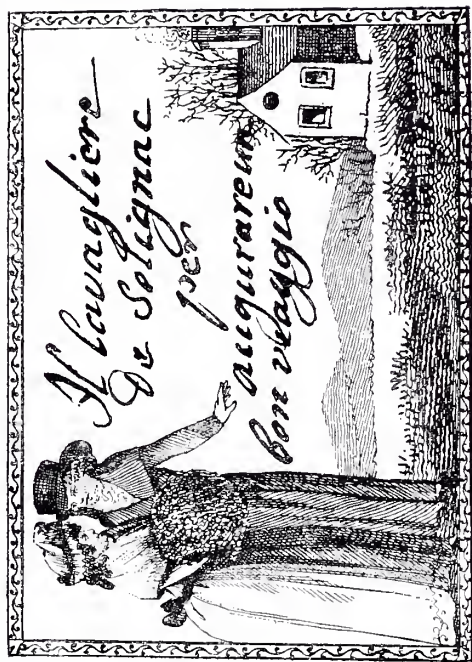 Il Cavagliere
De Solignac
per
augurare un
bon viaggio